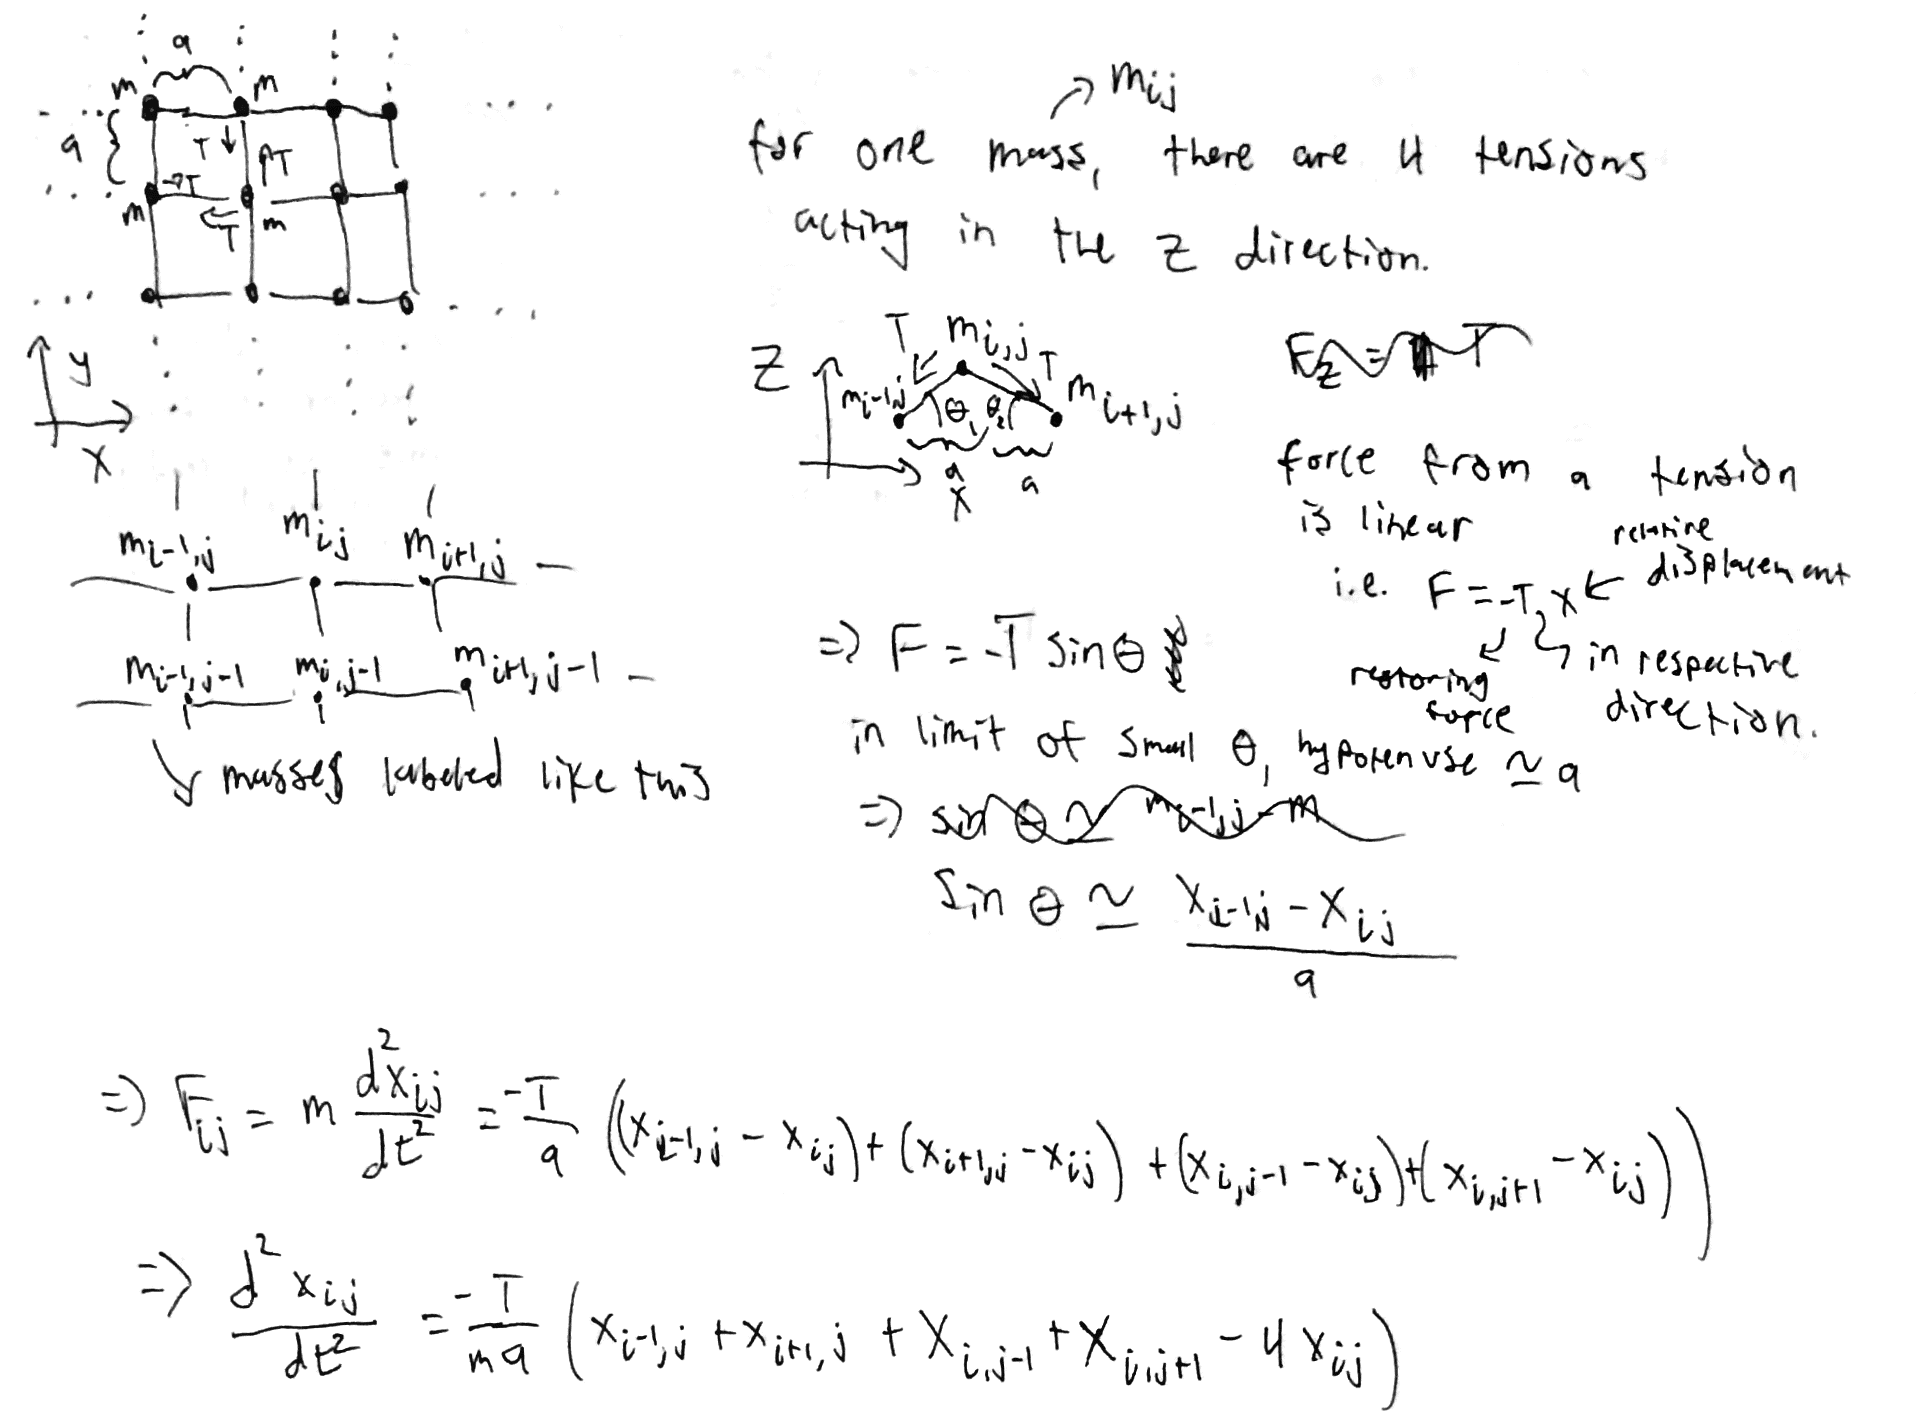 a
m m
a { T ↓ ↑T
→T
m ← T m
y
x
m_{i-1,j} m_{ij} m_{i+1,j}
m_{i-1,j-1} m_{i,j-1} m_{i+1,j-1}
↘ masses labeled like this
↗ m_{ij}
for one mass, there are 4 tensions
acting in the z direction.
T m_{i,j} T
z m_{i-1,j} θ_1 θ_2 m_{i+1,j}
a a
x
F_z = 4 T
force from a tension
is linear
i.e. F = -T x ← relative displacement
restoring force
in respective direction.
⇒ F = -T sin θ
in limit of small θ, hypotenuse ≃ a
⇒ sin θ ≃ m_{i-1,j} - m
sin θ ≃ \frac{x_{i-1,j} - x_{ij}}{a}
⇒ F_{ij} = m \frac{d^2 x_{ij}}{dt^2} = \frac{-T}{a} ((x_{i-1,j} - x_{ij}) + (x_{i+1,j} - x_{ij}) + (x_{i,j-1} - x_{ij}) + (x_{i,j+1} - x_{ij}))
⇒ \frac{d^2 x_{ij}}{dt^2} = \frac{-T}{ma} (x_{i-1,j} + x_{i+1,j} + x_{i,j-1} + x_{i,j+1} - 4 x_{ij})